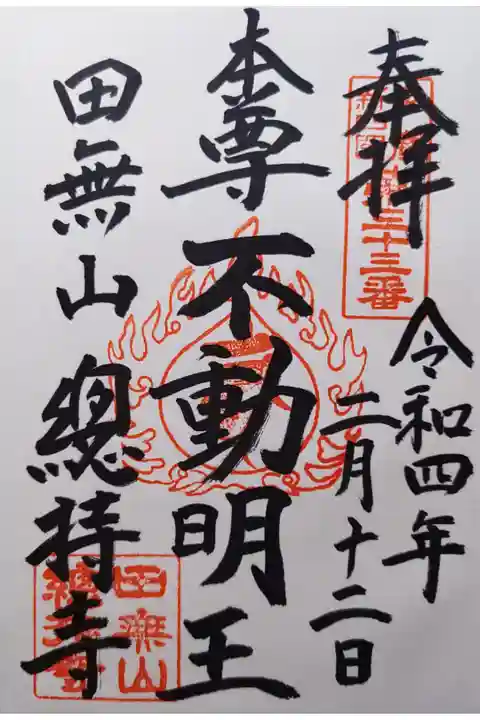 奉拝
三十三番
令和四年
二月十二日
本尊
不動明王
田無山
總持寺
田無山